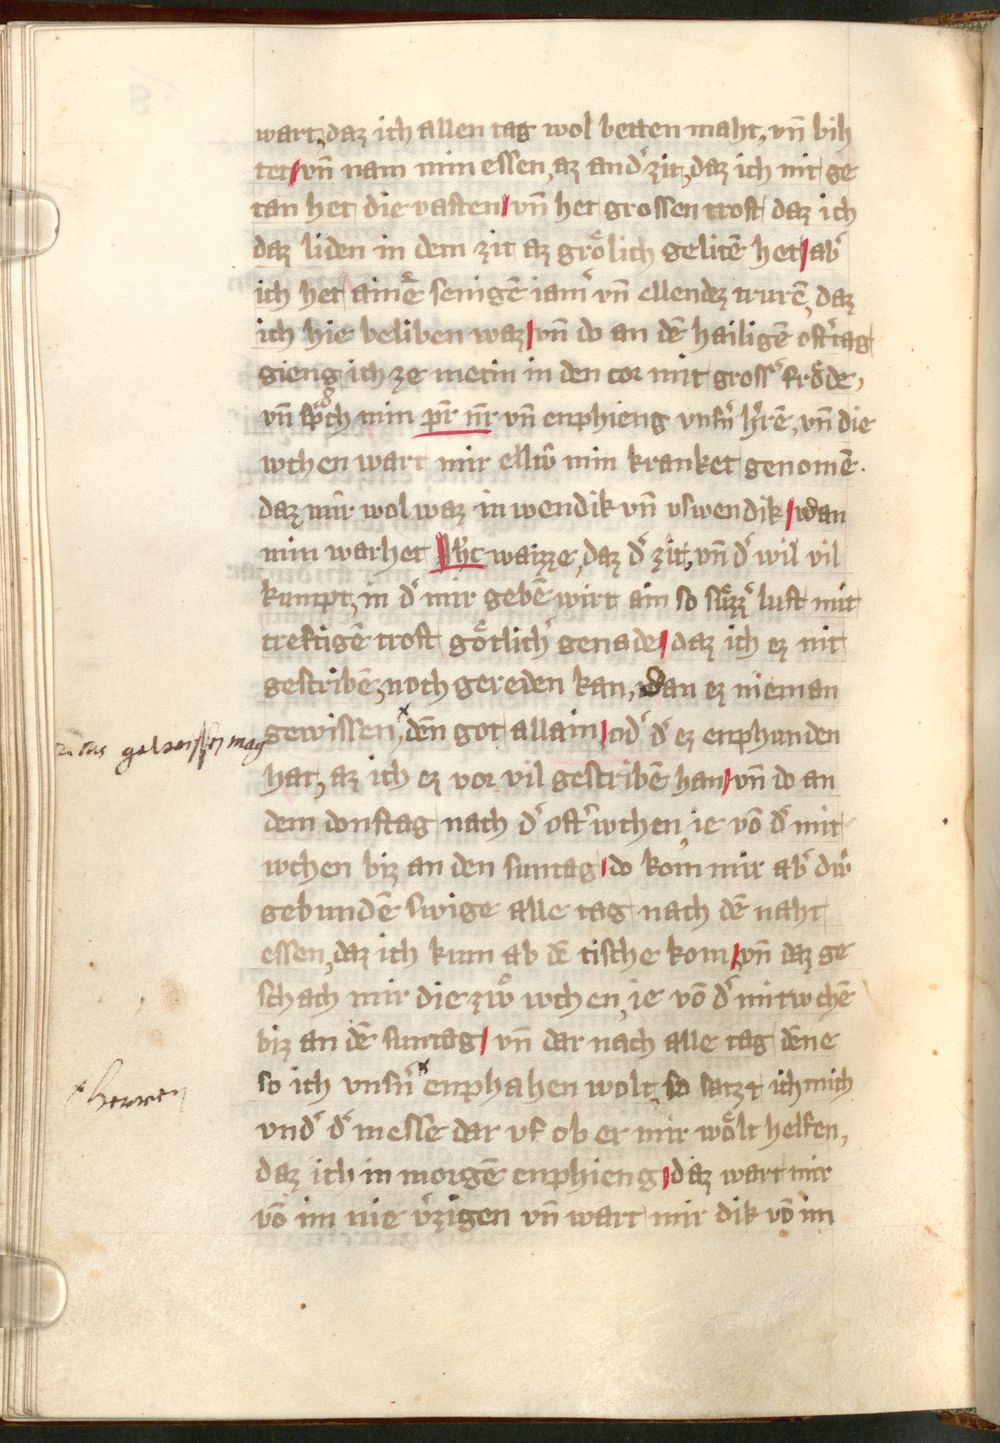 wart, daz ich allen tag wol betten maht, vn̄ bih
tet vn̄ nam min essen, az and᷑ zit, daz ich nit ge
tan het die vasten vn̄ het grossen trost daz ich
daz liden in dem zit az grőlich gelitē het ab᷑
ich het ainē senigē iam᷑ vn̄ ellendez trurē, daz
ich hie beliben waz vn̄ do an dē hailigē ost᷑tag
gieng ich ze metin in den cor mit gross᷑ frőde,
vn̄ sp̱ch min pr̄ nr̄ vn̄ enphieng vnsn᷑ h᷑rē, vn̄ die
wchen wart mir ellw̆ min kranket genomē.
daz mir wol waz in wendik vn̄ vswendik wan
min warhet Jhc waizze, daz d᷑ zit, vn̄ d᷑ wil vil
kumpt, in d᷑ mir gebē wirt ain so sűzz᷑ lust mit
creftigē trost gőtlich᷑ genade daz ich ez nit
gescribē, noch gereden kan, wan ez nieman
gewissen, dēn got allain od᷑ d᷑ ez enphunden
gewissen mag
hat, az ich ez vor vil gescribē han vn̄ do an
dem donstag nach d᷑ ost᷑wchen, ie vō d᷑ mit
wchen biz an den suntag do kom mir ab᷑ diw̆
gebundē swige alle tag nach dē naht
essen, daz ich kum ab dē tische kom vn̄ daz ge
schach mir die zwő wchen, ie vō d᷑ mitwchē
biz an dē suntag vn̄ dar nach alle tag dēne
so ich vnsn᷑ enphahen wolt, so satzt ich mich
herren
vnd᷑ d᷑ messe dar vf ob er mir wőlt helfen,
daz ich in morgē enphieng daz wart mir
vō im nie v᷑zigen vn̄ wart mir dik vō im